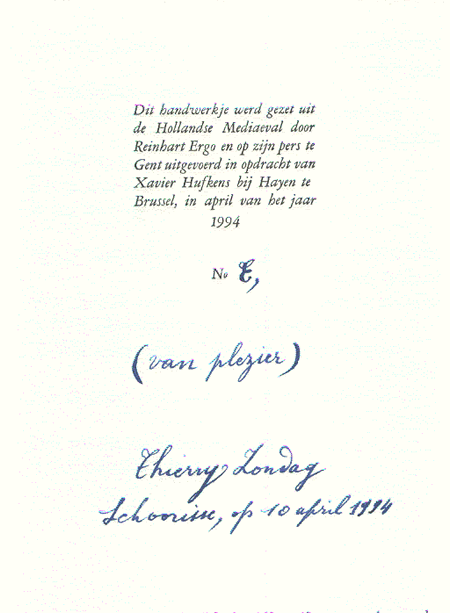 Dit handwerkje werd gezet uit
de Hollandse Mediaeval door
Reinhart Ergo en op zijn pers te
Gent uitgevoerd in opdracht van
Xavier Hufkens bij Hayen te
Brussel, in april van het jaar
1994
No E,
(van plezier)
Thierry Zondag
Schoorisse, op 10 april 1994